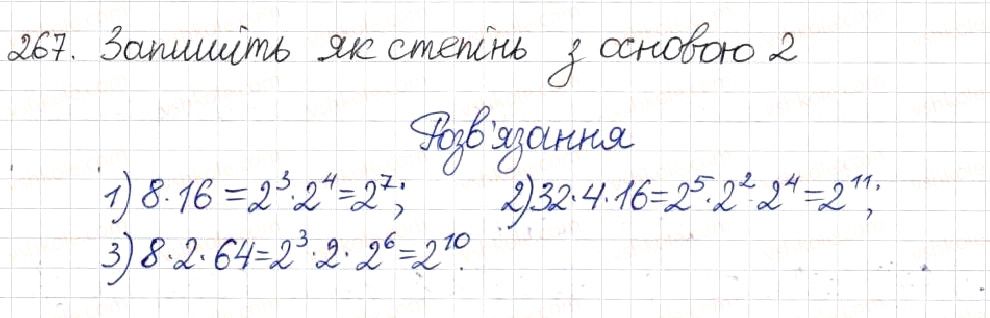 267. Запишіть як степінь з основою 2
Розв'язання
1) 8·16 = 2³·2⁴=2⁷; 2) 32·4·16=2⁵·2²·2⁴=2¹¹;
3) 8·2·64=2³·2·2⁶=2¹⁰.